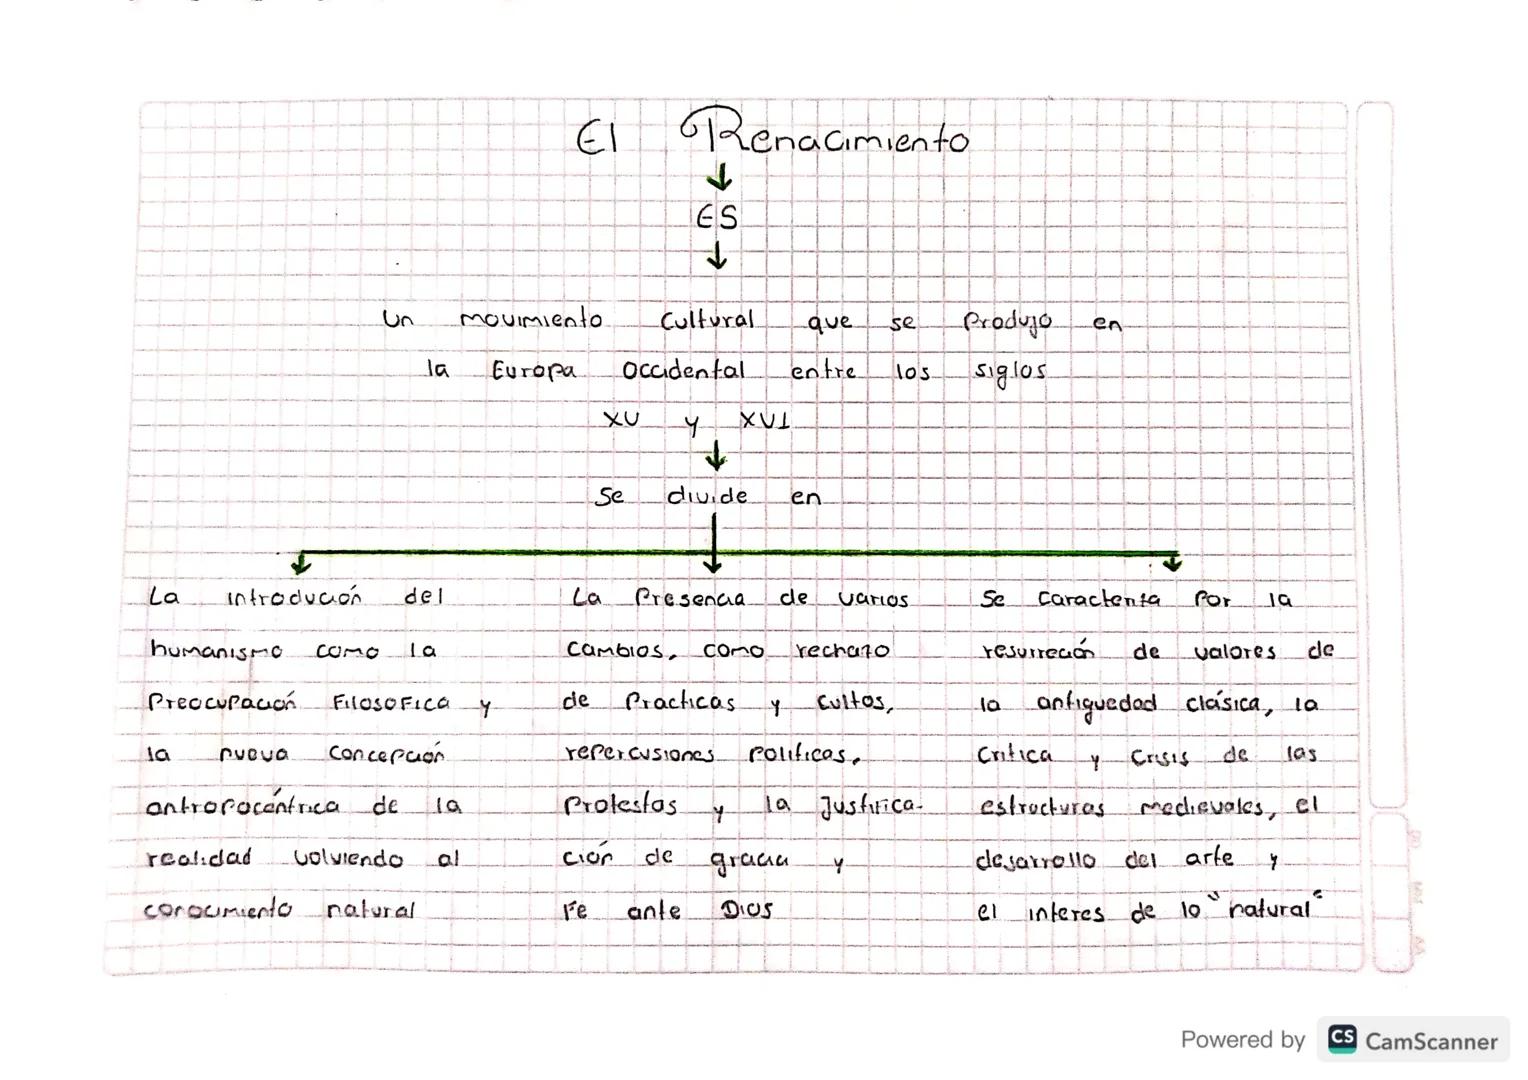 El Renacimiento
ES
Un movimiento cultural que se Produjo en
la Europa Occidental entre los siglos
XV y XVI
Se divide en
La introdución del
humanismo como la
Preocupación Filosofica y
la nueva concepción
antropocéntrica de la
realidad volviendo al
conocimiento natural
La Presencia de varios
cambios, como rechazo
de Practicas y cultos,
repercusiones politicas,
Protestas y la Justifica-
ción de gracia y
Fe ante Dios
Se caracteriza Por la
resurreción de valores de
la antiguedad clásica, la
Critica y Crisis de las
estructuras medievales, el
desarrollo del arte y
el interes de lo "natural"
Powered by CS CamScanner